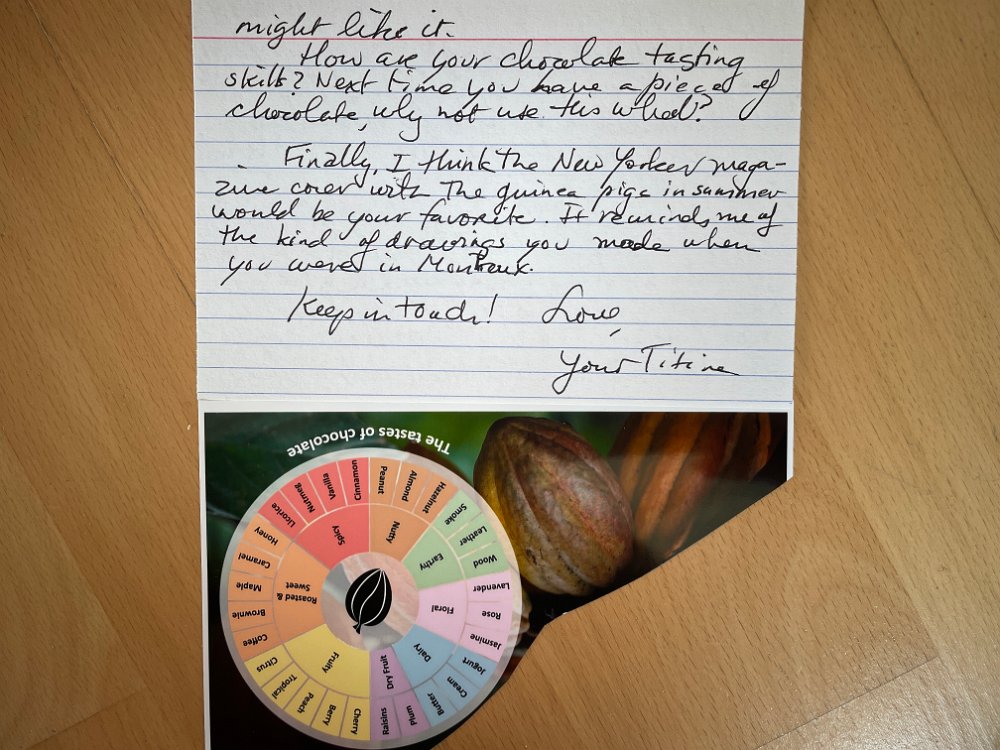 might like it.
How are your chocolate tasting
skills? Next time you have a piece of
chocolate, why not use this wheel?
Finally, I think the New Yorker maga-
zine cover with the guinea pigs in summer
would be your favorite. It reminds me of
the kind of drawings you made when
you were in Montreux.
Keep in touch! Love,
Your Titine
The tastes of chocolate
Spicy
Licorice
Nutmeg
Vanilla
Cinnamon
Nutty
Peanut
Almond
Hazelnut
Earthy
Smoke
Leather
Wood
Floral
Lavender
Rose
Jasmine
Dairy
Jogurt
Cream
Butter
Dry Fruit
Plum
Raisins
Fruity
Cherry
Berry
Peach
Tropical
Citrus
Roasted &
Sweet
Coffee
Brownie
Maple
Caramel
Honey